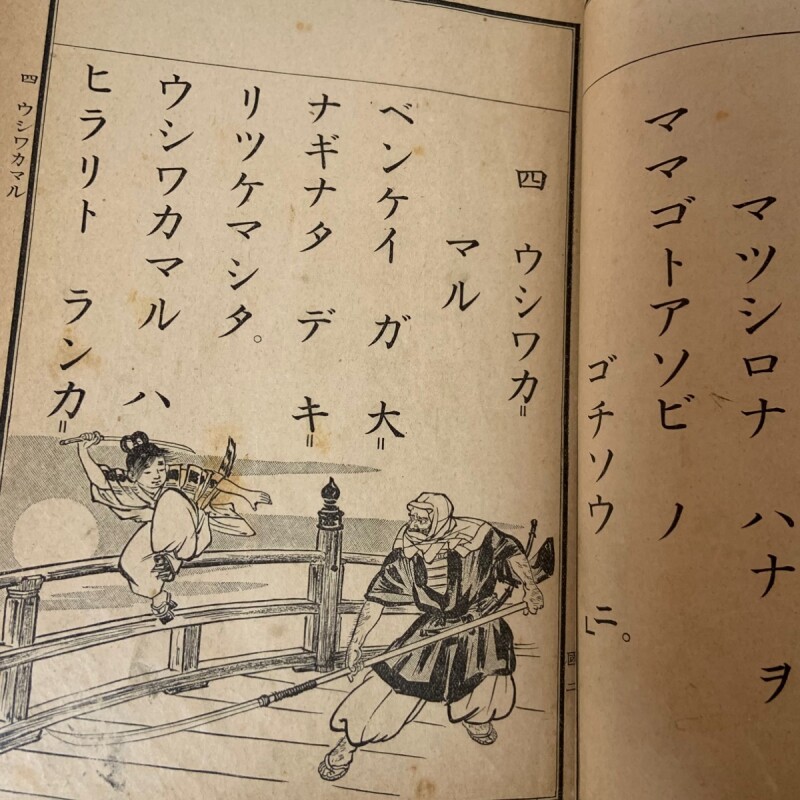 マツシロナ ハナ ヲ
ママゴトアソビ ノ
ゴチソウ ニ。」
四 ウシワカ＝
マル
ベンケイ ガ 大＝
ナギナタ デ キ＝
リツケマシタ。
ウシワカマル ハ
ヒラリト ランカ＝
四 ウシワカマル